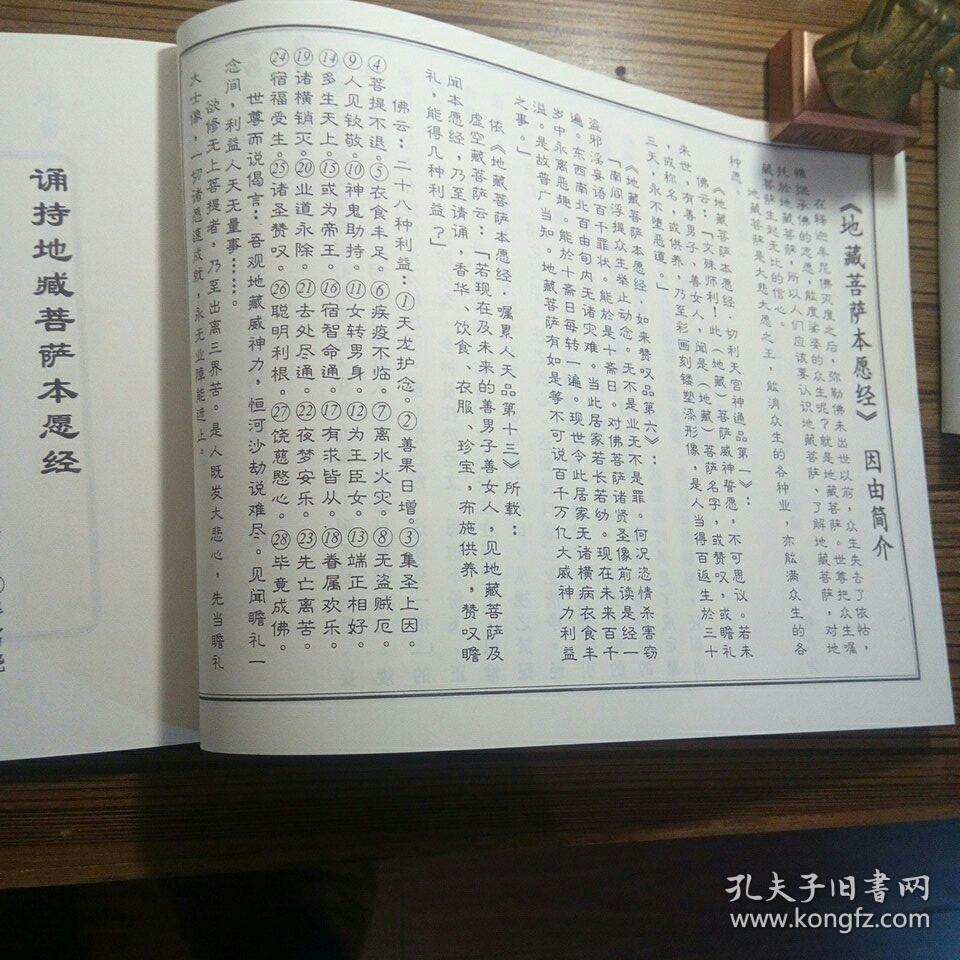 《地藏菩萨本愿经》 因由简介
在释迦牟尼佛灭度之后，弥勒佛未出世以前，众生失去了依怙，
谁继承佛的志愿，能度娑婆的众生呢？就是地藏菩萨。世尊把众生嘱
托於地藏菩萨，所以人们应该要认识地藏菩萨、了解地藏菩萨，对地
藏菩萨生起无比的信心。
地藏菩萨是大悲大愿之王，能消众生的各种业，亦能满众生的各
种愿。
《地藏菩萨本愿经·忉利天宫神通品第一》：
佛云：「文殊师利！此（地藏）菩萨威神誓愿，不可思议。若未
来世，有善男子、善女人，闻是（地藏）菩萨名字，或赞叹，或瞻礼
，或称名，或供养，乃至彩画刻镂塑漆形像，是人当得百返生於三十
三天，永不堕恶道。」
《地藏菩萨本愿经·如来赞叹品第六》：
「南阎浮提众生举止动念。无不是业无不是罪。何况恣情杀害窃
盗邪淫妄语百千罪状。能於是十斋日。对佛菩萨诸贤圣像前读是经一
遍。东西南北百由旬内无诸灾难。当此居家若长若幼。现在未来百千
岁中永离恶趣。能於十斋日每转一遍。现世令此居家无诸横病衣食丰
溢。是故普广当知。地藏菩萨有如是等不可说百千万亿大威神力利益
之事。」
依《地藏菩萨本愿经·嘱累人天品第十三》所载：
虚空藏菩萨云：「若现在及未来的善男子善女人，见地藏菩萨及
闻本愿经，乃至请诵，香华、饮食、衣服、珍宝，布施供养，赞叹瞻
礼，能得几种利益？」
佛云：二十八种利益：①天龙护念。②善果日增。③集圣上因。
④菩提不退。⑤衣食丰足。⑥疾疫不临。⑦离水火灾。⑧无盗贼厄。
⑨人见钦敬。⑩神鬼助持。⑪女转男身。⑫为王臣女。⑬端正相好。
⑭多生天上。⑮或为帝王。⑯宿智命通。⑰有求皆从。⑱眷属欢乐。
⑲诸横销灭。⑳业道永除。㉑去处尽通。㉒夜梦安乐。㉓先亡离苦。
㉔宿福受生。㉕诸圣赞叹。㉖聪明利根。㉗饶慈愍心。㉘毕竟成佛。
世尊而说偈言：吾观地藏威神力，恒河沙劫说难尽。见闻瞻礼一
念间，利益人天无量事……。
欲修无上菩提者，乃至出离三界苦。是人既发大悲心，先当瞻礼
大士像，一切诸愿速成就，永无业障能遮止。
诵持地藏菩萨本愿经
孔夫子旧书网
www.kongfz.com